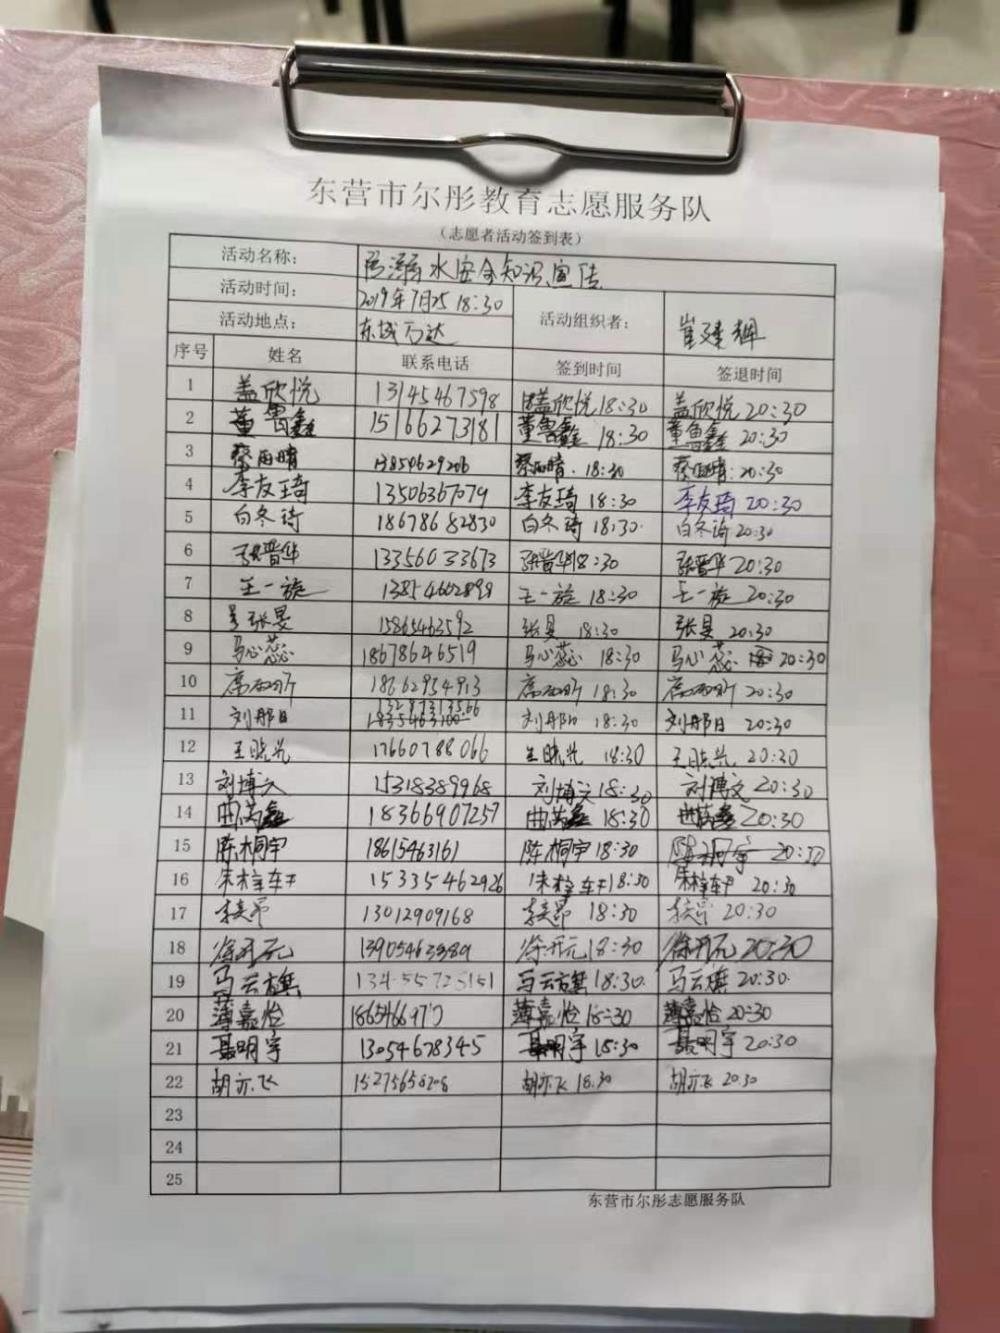 东营市尔彤教育志愿服务队
（志愿者活动签到表）
活动名称： 防溺水安全知识宣传
活动时间： 2019年7月25 18:30
活动地点： 东城万达 活动组织者： 崔建辉
序号 姓名 联系电话 签到时间 签退时间
1 盖欣悦 13145467598 盖欣悦 18:30 盖欣悦 20:30
2 董鲁鑫 15166273181 董鲁鑫 18:30 董鲁鑫 20:30
3 蔡雨晴 13850629206 蔡雨晴. 18:30 蔡雨晴. 20:30
4 李友琦 13506367079 李友琦 18:30 李友琦 20:30
5 白冬琦 18678682830 白冬琦 18:30. 白冬琦 20:30
6 张晋华 13356033673 张晋华 18:30 张晋华 20:30
7 王一旋 13854602899 王一旋 18:30 王一旋 20:30
8 张昊 15865463592 张昊 18:30 张昊 20:30
9 马心蕊 18678646519 马心蕊 18:30 马心蕊 20:30
10 18662954913 18:30 20:30
11 刘那日 13287313566 刘那日 18:30 刘那日 20:30
12 王晓光 17660788066 王晓光 18:30 王晓光 20:30
13 刘博文 15318389968 刘博文 18:30 刘博文 20:30
14 曲芮鑫 18366907257 曲芮鑫 18:30 曲芮鑫 20:30
15 陈桐宇 18615463161 陈桐宇 18:30 陈桐宇 20:30
16 15335462926 18:30 20:30
17 13012909168 18:30 20:30
18 徐开元 徐开元 18:30 徐开元 20:30
19 马云旗 马云旗 18:30. 马云旗 20:30.
20 薄嘉怡 薄嘉怡 18:30 薄嘉怡 20:30
21 聂明宇 13054678345 聂明宇 18:30 聂明宇 20:30
22 胡亦飞 15275658208 胡亦飞 18:30 胡亦飞 20:30
23
24
25
东营市尔彤志愿服务队